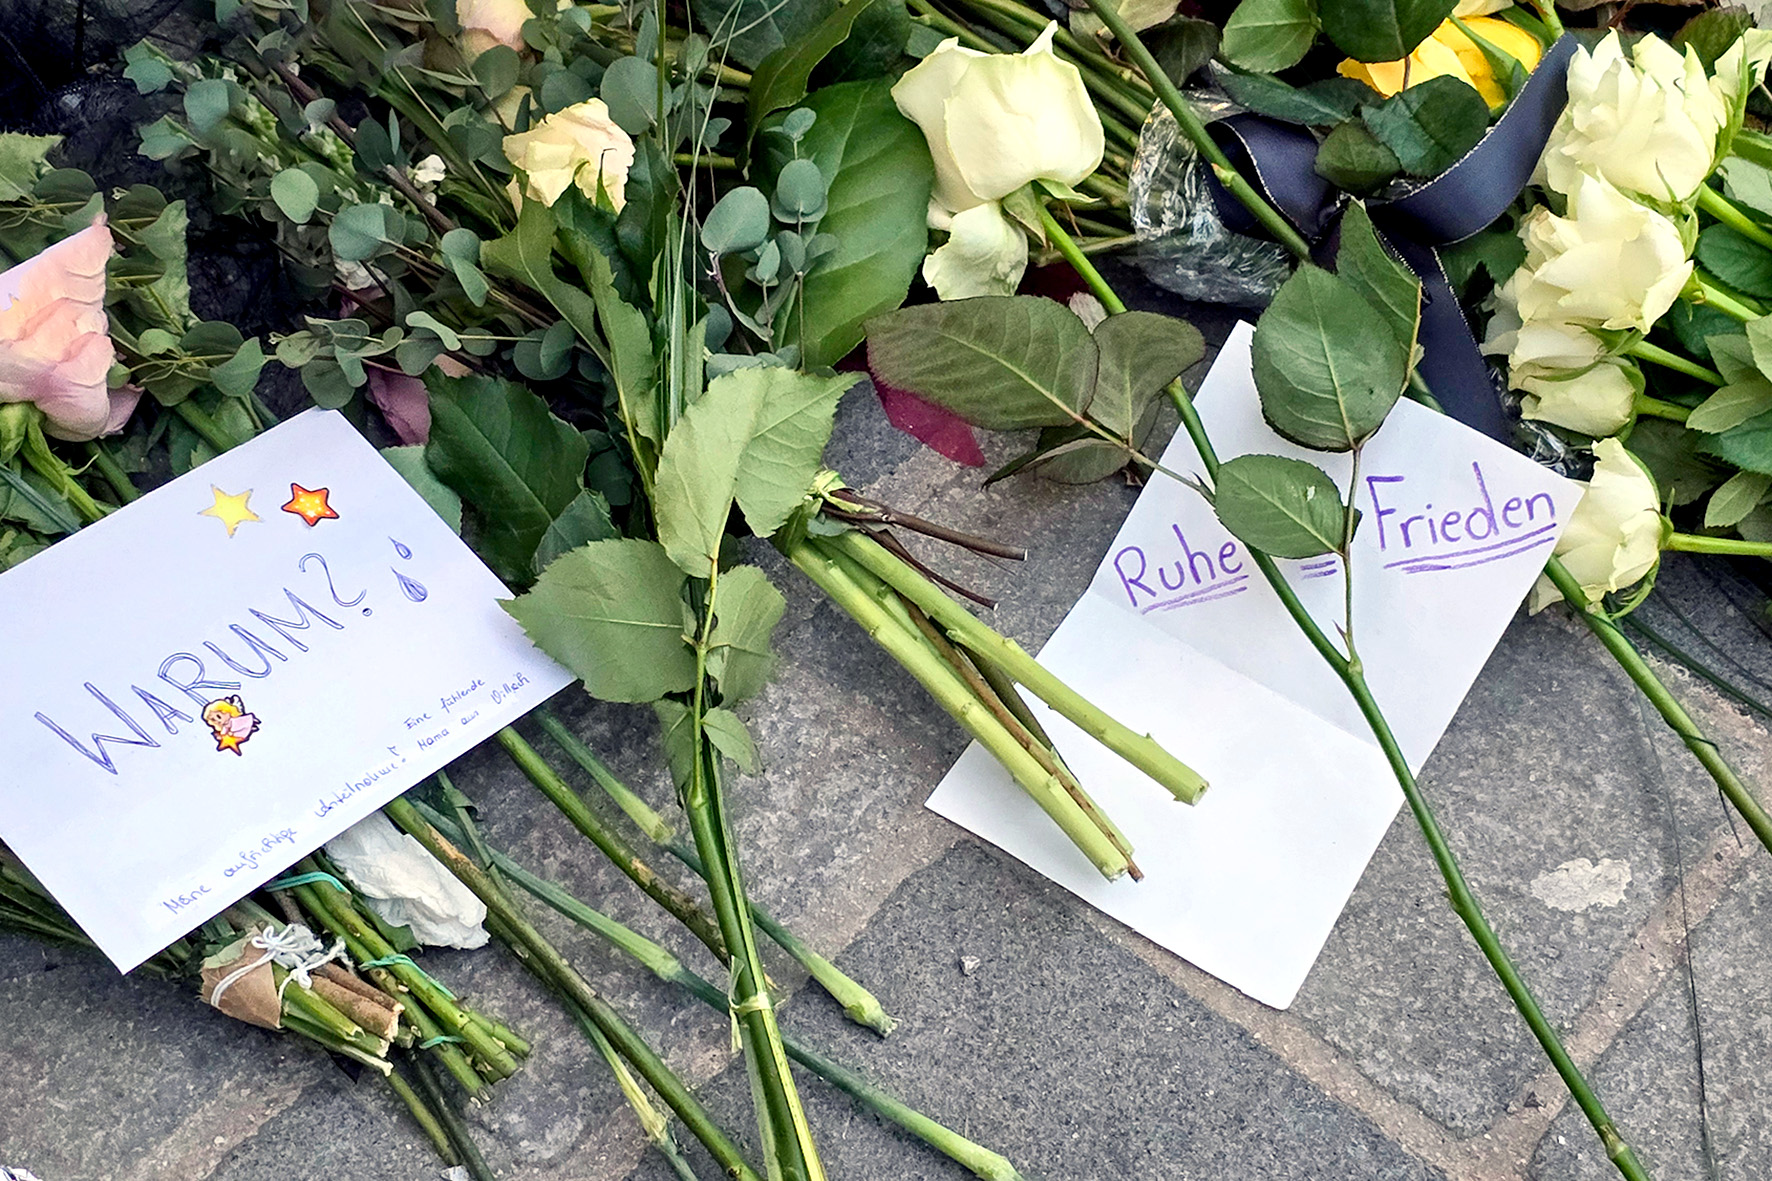 WARUM?
Meine aufrichtige Anteilnahme! Eine fühlende
Mama aus Villach
Ruhe = Frieden